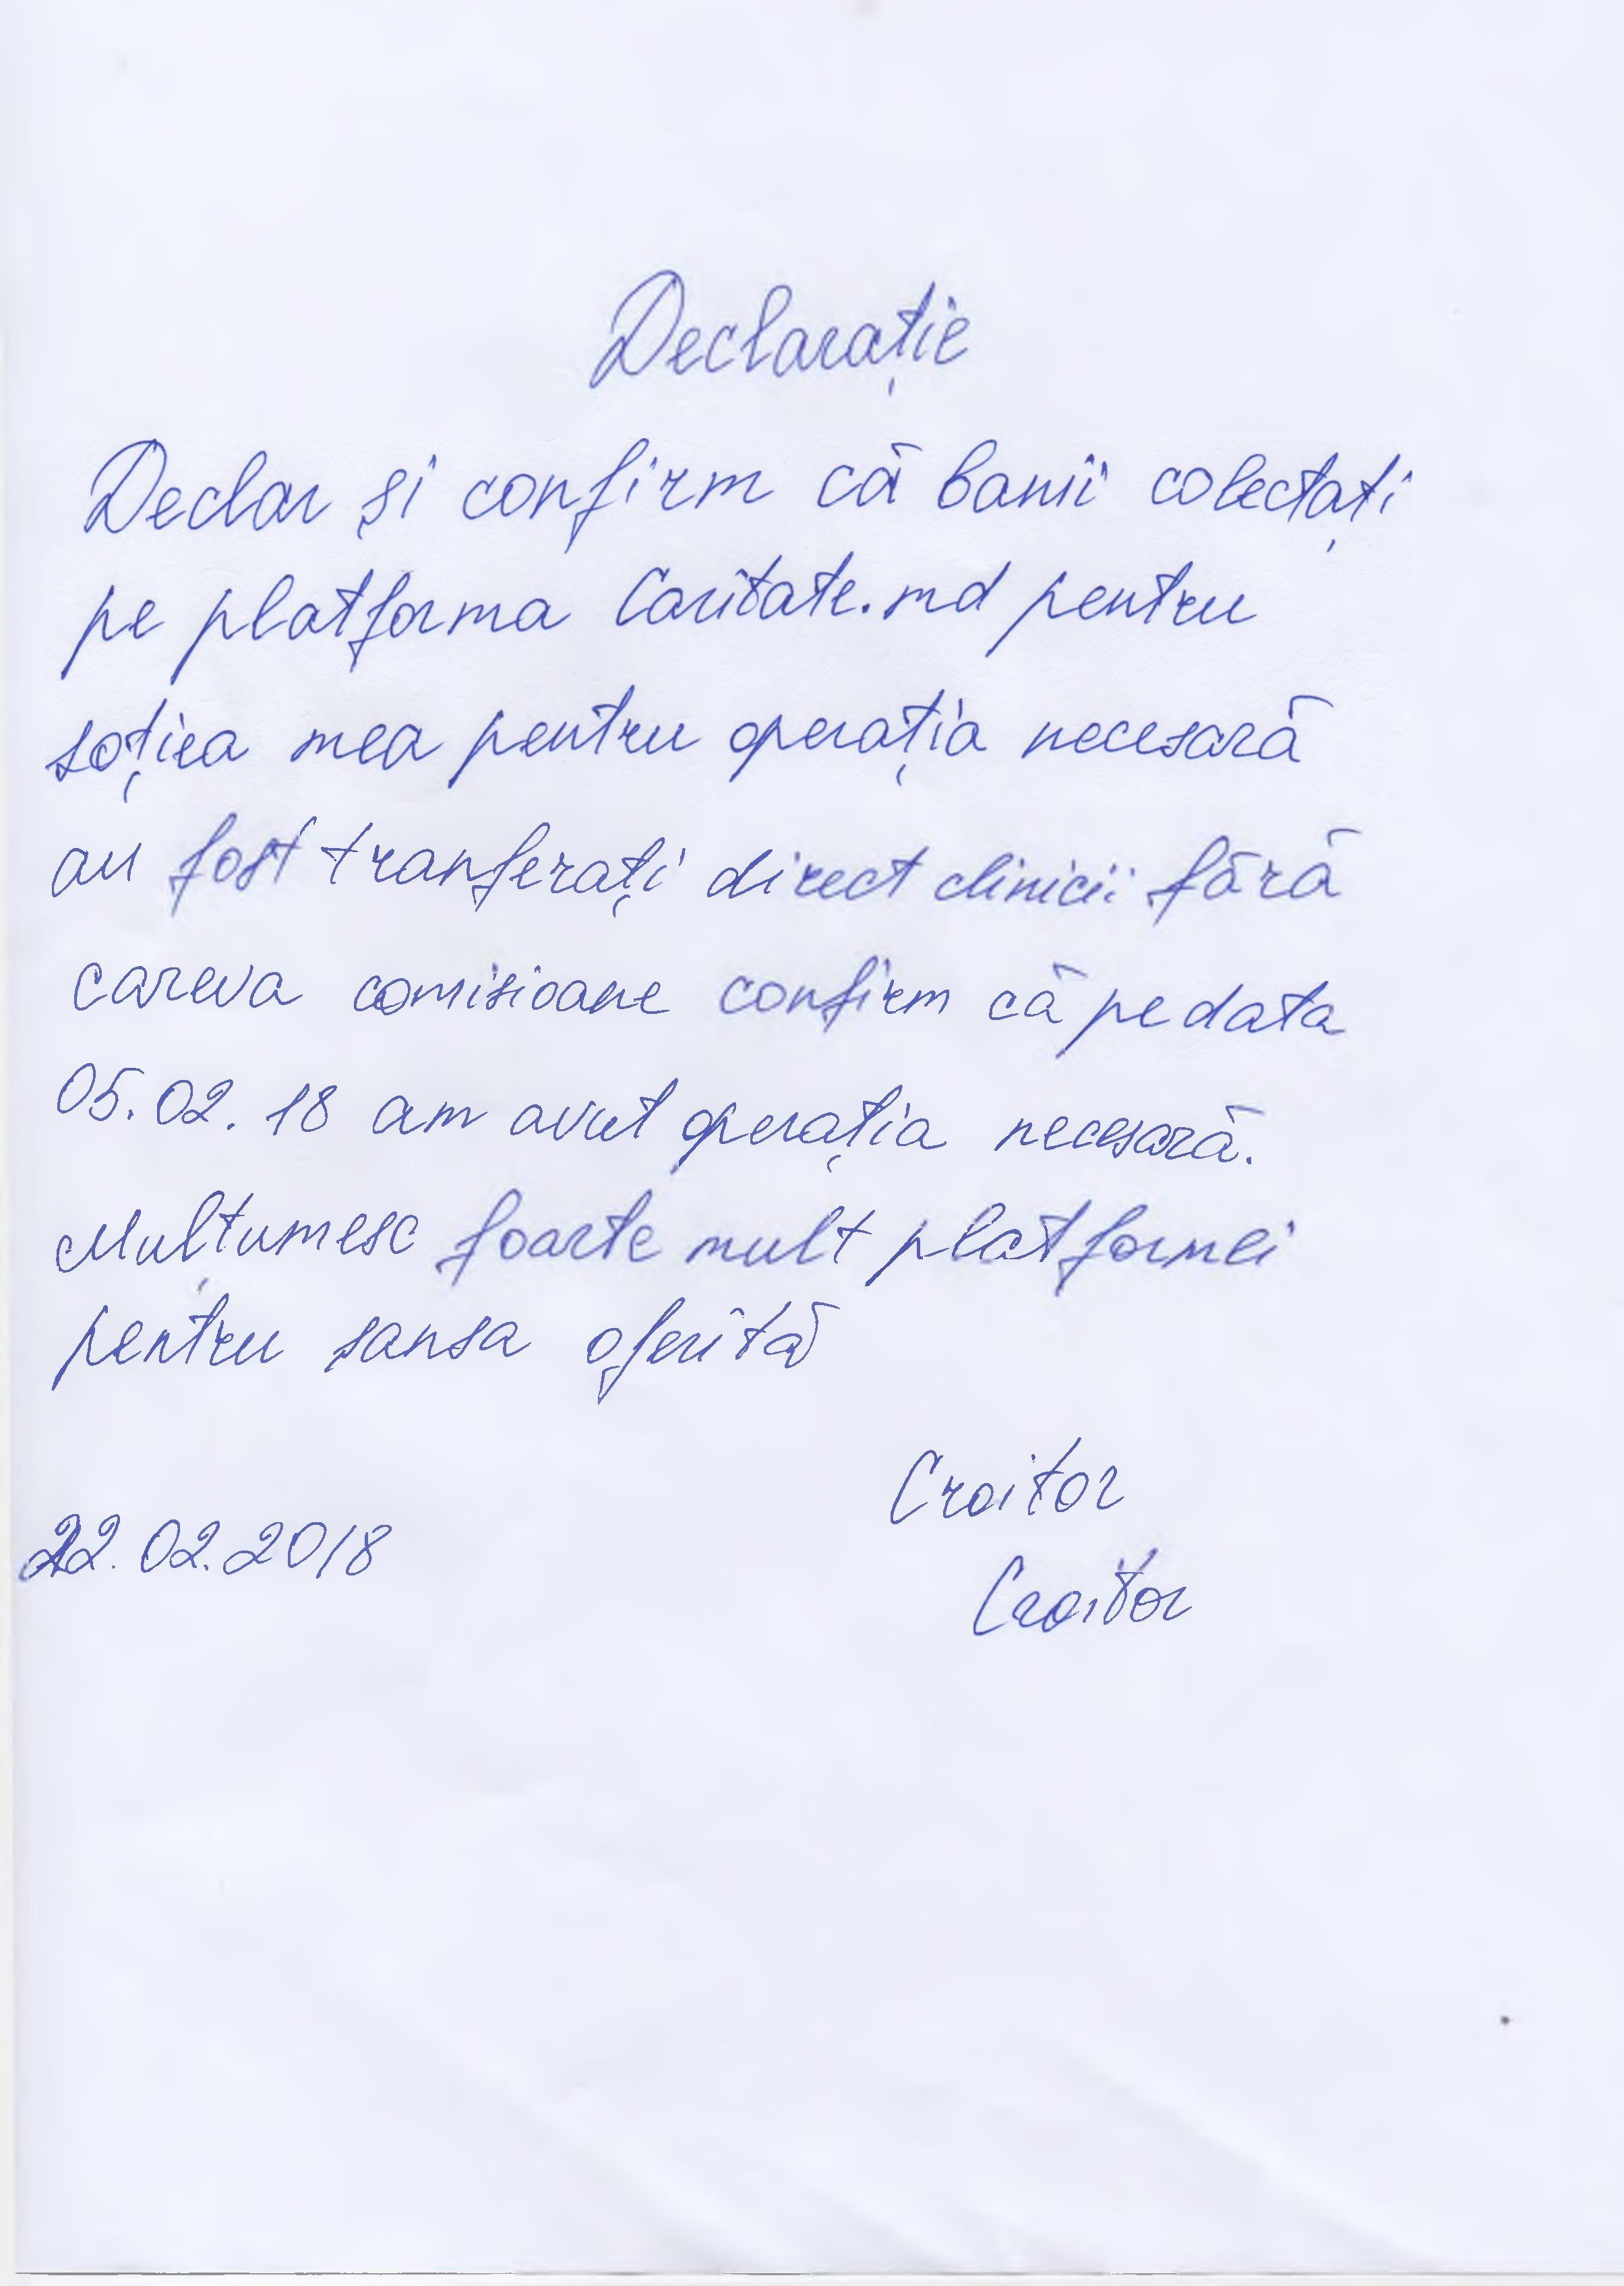 Declarație
Declar și confirm că banii colectați
pe platforma Caritate.md pentru
soțiea mea pentru operația necesară
au fost tranferați direct clinicii fără
careva comisioane confirm că pe data
05.02.18 am avut operația necesară.
Mulțumesc foarte mult platformei
pentru sansa oferită
Croitor
22.02.2018
Croitor